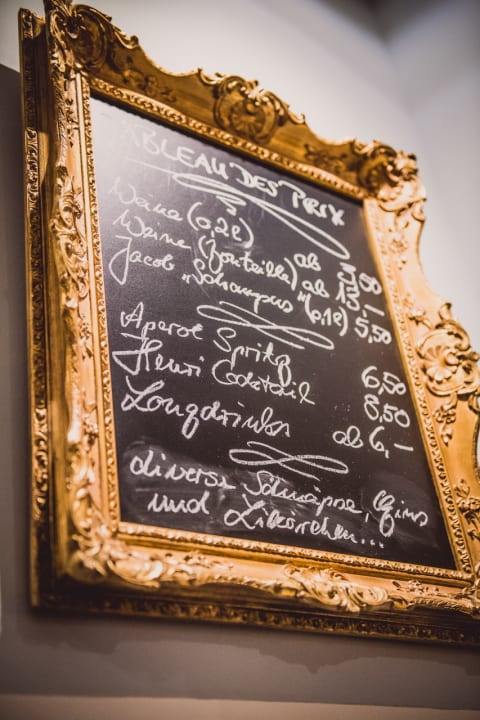 TABLEAU DES PRIX
Weine (0,2l) ab 50
Weine (Bouteille) ab 15,—
Jacob „Schampus“ (0,1l) 5,50
Aperol Spritz 6,50
Henri Cocktail 8,50
Longdrinks ab 6,—
diverse Schnäpse, Gins
und Likörchen...